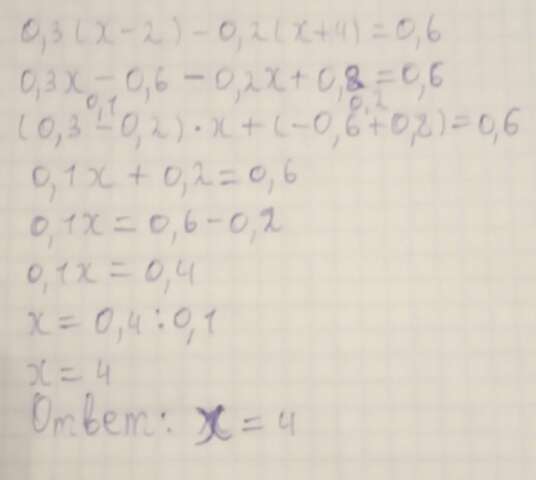 0,3(x-2)-0,2(x+4)=0,6
0,3x-0,6-0,2x+0,8=0,6
0,1 0,2
(0,3-0,2)·x+(-0,6+0,8)=0,6
0,1x+0,2=0,6
0,1x=0,6-0,2
0,1x=0,4
x=0,4:0,1
x=4
Ответ: x=4